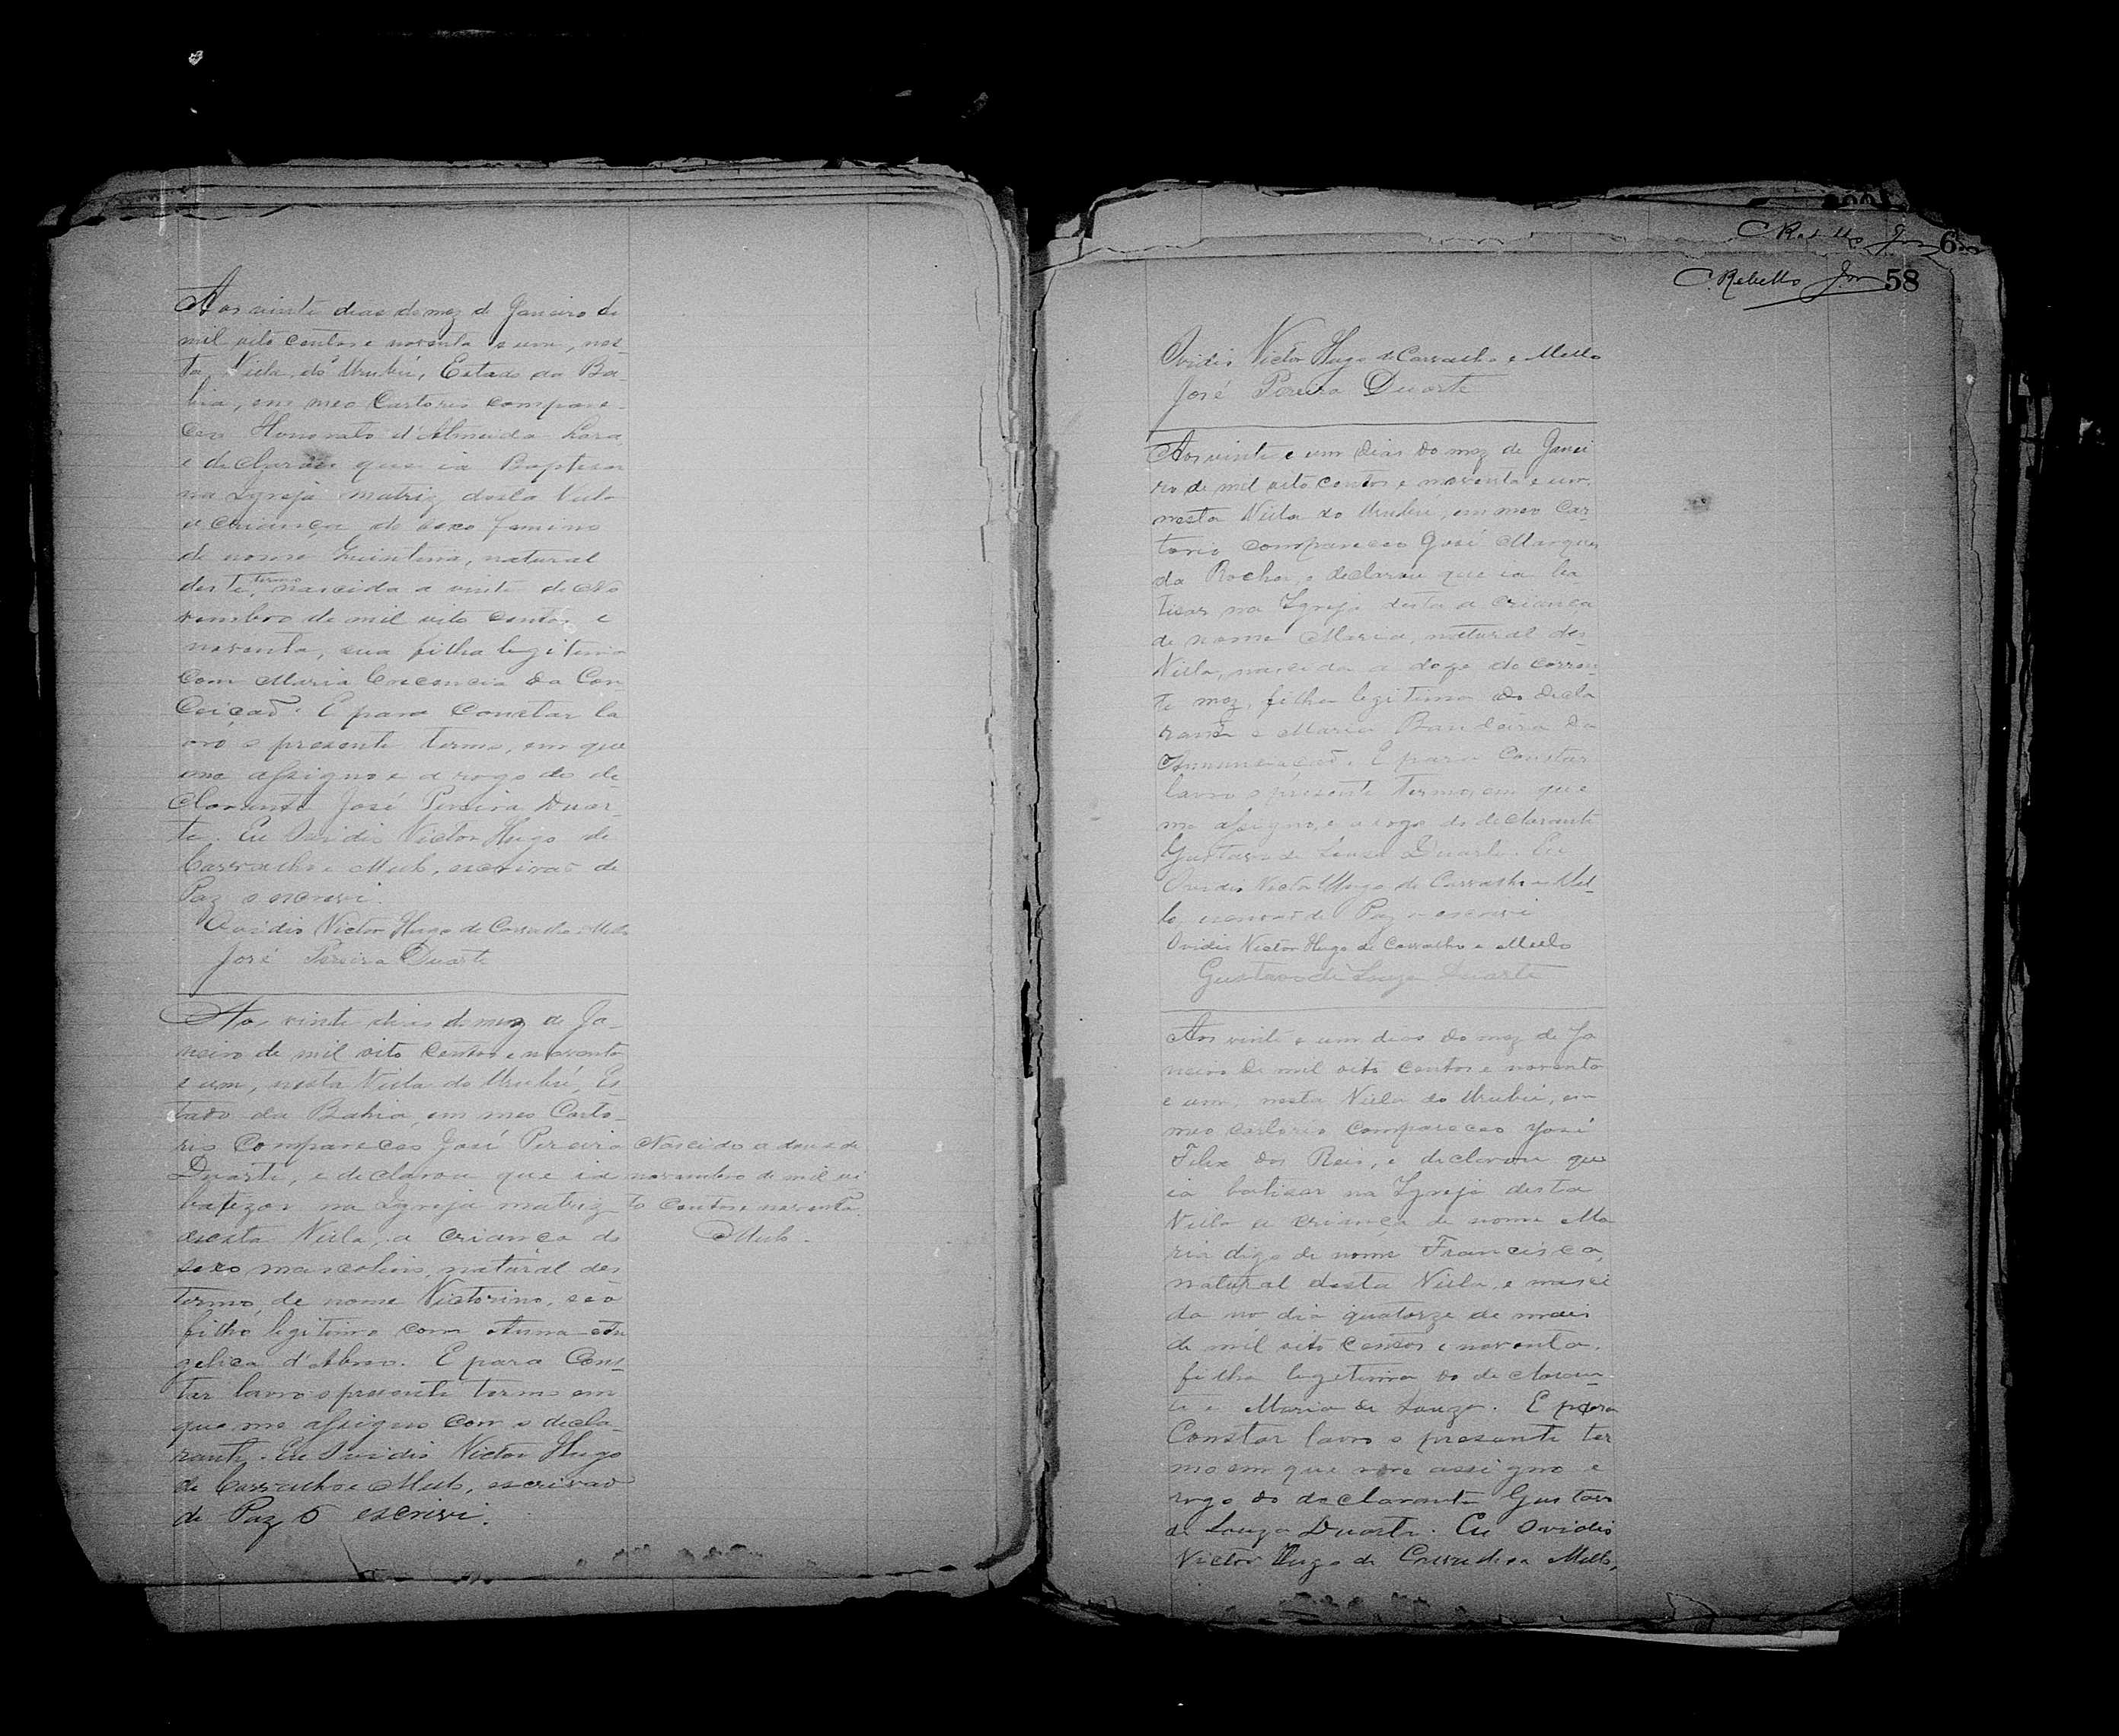 Aos vinte dias do mez de Janeiro de
mil oito centos e noventa e um, nes-
ta Villa do Urubú, Estado da Ba-
hia, em meo Cartorio compare-
ceo Honorato d'Almeida Lara
e declarou que ia Baptisar
na Igreja matriz desta Villa
a criança do sexo femino
de nome, natural
deste termo, nascida a vinte de No
vembro de mil oito centos e
noventa, sua filha legitima
com Maria da Con
ceiçaõ. E para constar la
vro o presente termo, em que
me assigno e a rogo do de
clarante José Pereira Duar-
te. Eu Ovidio Victor Hugo de
Carvalho e Mello, escrivaõ de
Paz o escrevi.
Ovidio Victor Hugo de Carvalho e Mello
José Pereira Duarte
Aos vinte dias do mez de Ja-
neiro de mil oito centos e noventa
e um, nesta Villa do Urubú, Es
tado da Bahia, em meo Carto-
rio compareceo José Pereira
Duarte, e declarou que ia
batizar na Igreja matriz
desta Villa, a criança do
sexo mascolino, natural des
termo, de nome Victorino, seo
filho legitimo com Anna An
gelica d'Abreo. E para Cons-
tar lavro o presente termo em
que me assigno com o decla-
rante. Eu Ovidio Victor Hugo
de Carvalho e Mello, escrivaõ
de Paz o escrevi.
Nascido a doze de
novembro de mil oi
to centos e noventa.
Mello.
C Rebello Jor 6
C. Rebello Jor 58
Ovidio Victor Hugo de Carvalho e Mello
José Pereira Duarte
Aos vinte e um dias do mez de Janei
ro de mil oito centos e noventa e um.
nesta Villa do Urubú, em meo Car-
torio compareceo José Marques
da Rocha, e declarou que ia ba
tisar na Igreja desta a criança
de nome Maria, natural des
Villa, nascida a doze do corren
te mez, filha legitima do decla
rante e Maria Bandeira da
Annunciaçaõ. E para constar
lavro o presente termo, em que
me assigno, e a rogo do declarante
Gustavo de Souza Duarte. Eu
Ovidio Victor Hugo de Carvalho e Mel-
lo, escrivaõ de Paz o escrevi
Ovidio Victor Hugo de Carvalho e Mello
Gustavo de Souza Duarte
Aos vinte e um dias do mez de Ja
neiro de mil oito centos e noventa
e um, nesta Villa do Urubú, em
meo cartorio compareceo José
Felix dos Reis, e declarou que
ia batisar na Igreja desta
Villa a criança de nome Ma
ria digo de nome Francisca,
natural desta Villa, e nasci
da no dia quatorze de maio
de mil oito centos e noventa.
filha legitima do declaran-
te e Maria de Souza. E para
Constar lavro o presente ter
mo em que me assigno e
rogo do declarante Gustavo
de Souza Duarte. Eu Ovidio
Victor Hugo de Carvalho e Mello,